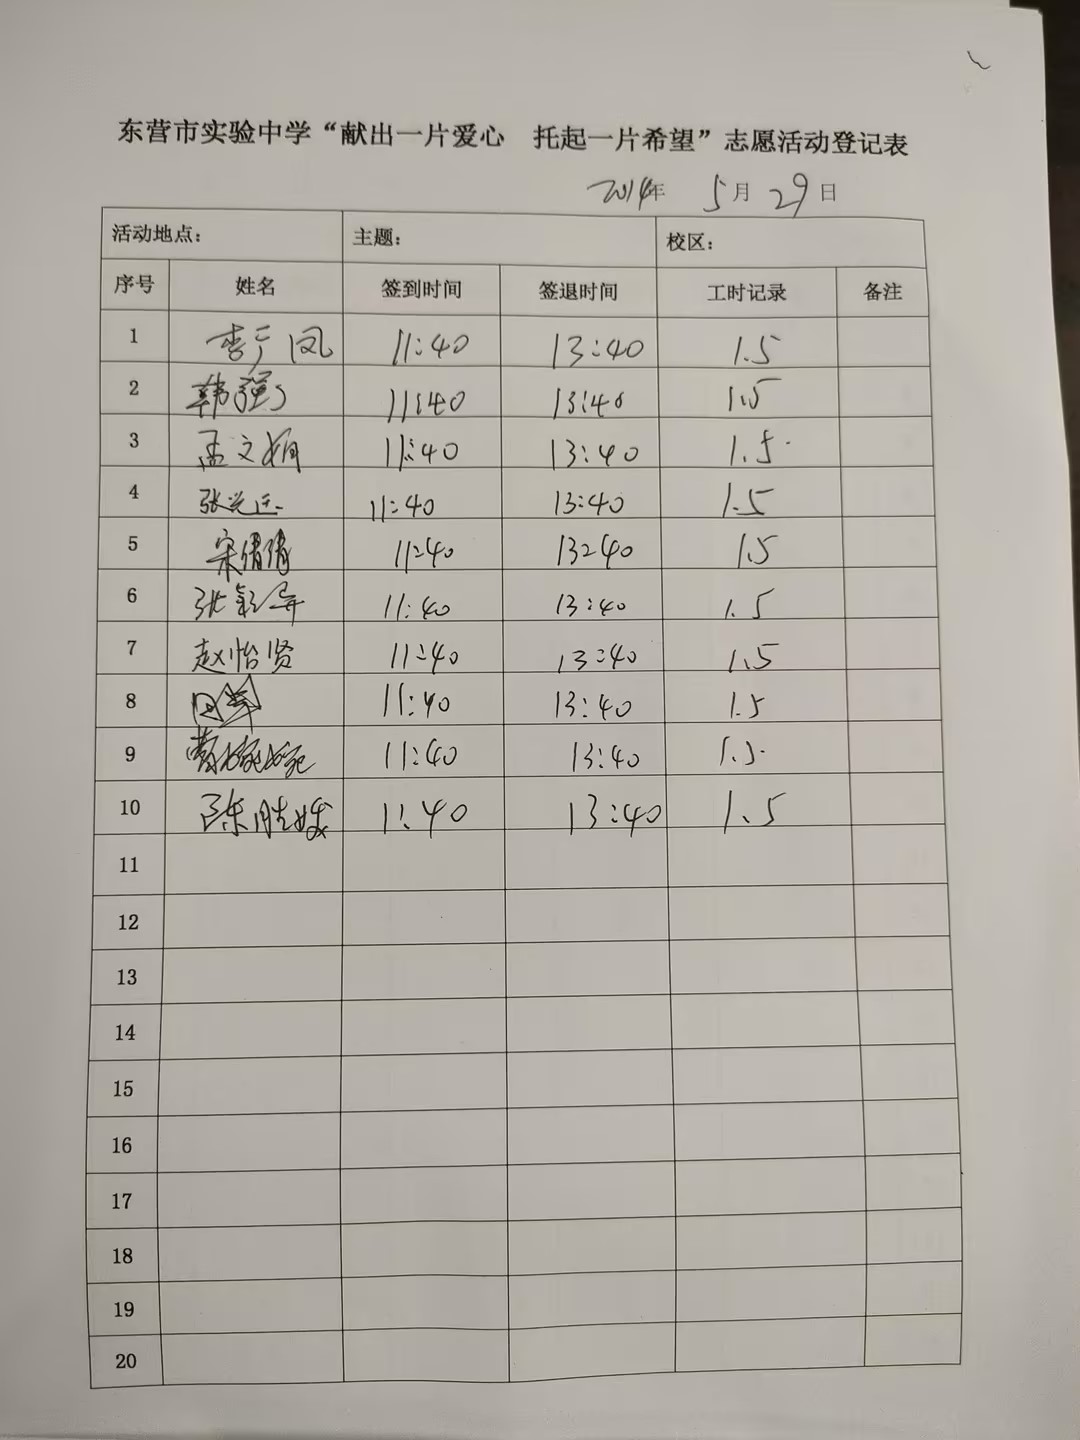 东营市实验中学“献出一片爱心　托起一片希望”志愿活动登记表
2014年 5月29日
活动地点： 主题： 校区：
序号 姓名 签到时间 签退时间 工时记录 备注
1 李广凤 11:40 13:40 1.5
2 韩强 11:40 13:40 1.5
3 孟文娟 11:40 13:40 1.5
4 张 11:40 13:40 1.5
5 宋倩倩 11:40 13:40 1.5
6 张 11:40 13:40 1.5
7 赵怡贤 11:40 13:40 1.5
8 11:40 13:40 1.5
9 11:40 13:40 1.5
10 陈胜 11:40 13:40 1.5
11
12
13
14
15
16
17
18
19
20